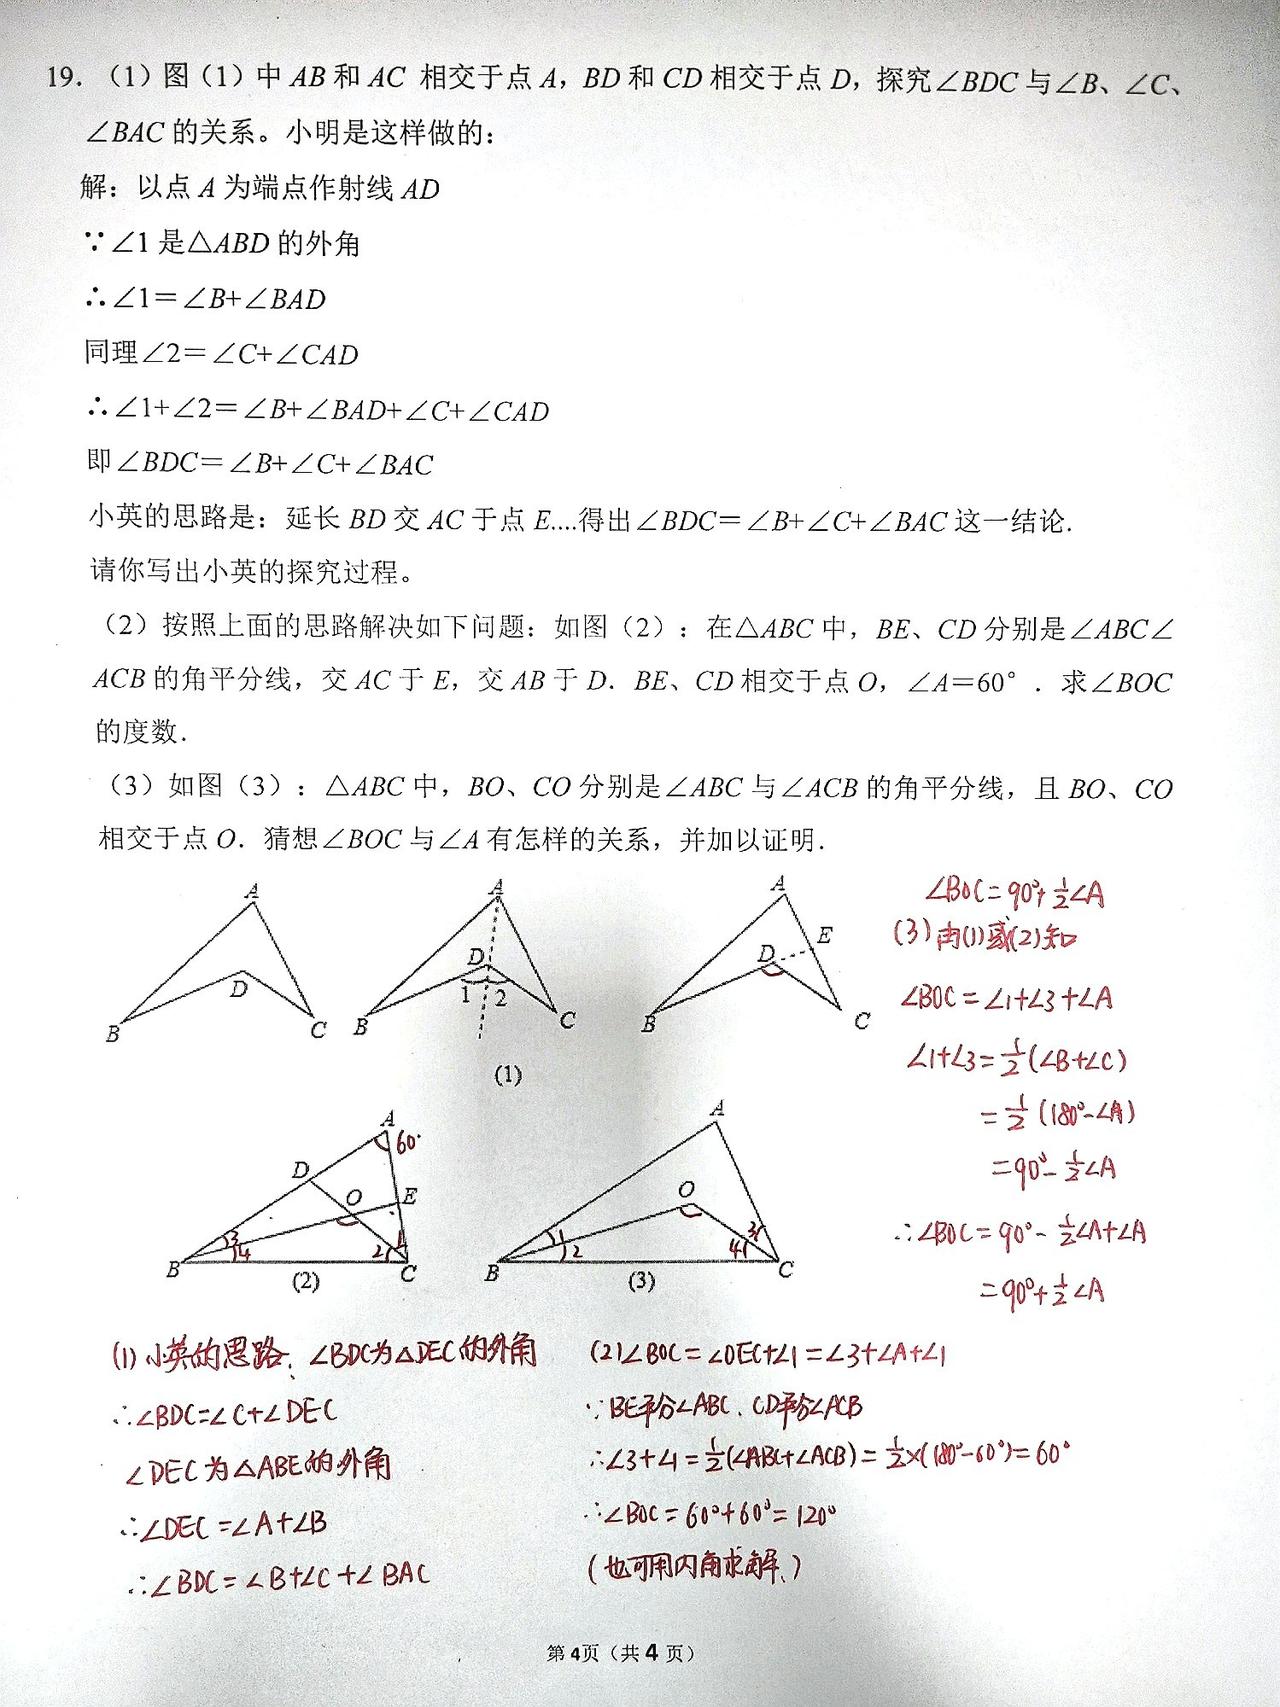 19.（1）图（1）中 AB 和 AC 相交于点 A，BD 和 CD 相交于点 D，探究∠BDC 与∠B、∠C、
∠BAC 的关系。小明是这样做的：
解：以点 A 为端点作射线 AD
∵∠1 是△ABD 的外角
∴∠1＝∠B+∠BAD
同理∠2＝∠C+∠CAD
∴∠1+∠2＝∠B+∠BAD+∠C+∠CAD
即∠BDC＝∠B+∠C+∠BAC
小英的思路是：延长 BD 交 AC 于点 E....得出∠BDC＝∠B+∠C+∠BAC 这一结论.
请你写出小英的探究过程。
（2）按照上面的思路解决如下问题：如图（2）：在△ABC 中，BE、CD 分别是∠ABC∠
ACB 的角平分线，交 AC 于 E，交 AB 于 D．BE、CD 相交于点 O，∠A＝60°．求∠BOC
的度数.
（3）如图（3）：△ABC 中，BO、CO 分别是∠ABC 与∠ACB 的角平分线，且 BO、CO
相交于点 O．猜想∠BOC 与∠A 有怎样的关系，并加以证明.
A
B
D
C
A
D
1 2
B
C
(1)
A
D
E
B
C
A
60°
D
O
E
3
4
2
1
B
C
(2)
A
O
1
2
3
4
B
C
(3)
∠BOC=90°+1/2∠A
(3)由(1)或(2)知
∠BOC=∠1+∠3+∠A
∠1+∠3=1/2(∠B+∠C)
=1/2(180°-∠A)
=90°-1/2∠A
∴∠BOC=90°-1/2∠A+∠A
=90°+1/2∠A
(1)小英的思路、∠BDC为△DEC的外角
∴∠BDC=∠C+∠DEC
∠DEC为△ABE的外角
∴∠DEC=∠A+∠B
∴∠BDC=∠B+∠C+∠BAC
(2)∠BOC=∠OEC+∠1=∠3+∠A+∠1
∵BE平分∠ABC、CD平分∠ACB
∴∠3+∠1=1/2(∠ABC+∠ACB)=1/2×(180°-60°)=60°
∴∠BOC=60°+60°=120°
(也可用内角求解、)
第 4页（共 4 页）